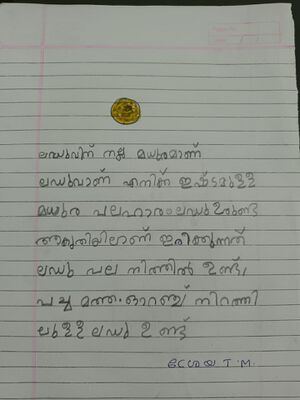 ലഡുവിന് നല്ല മധുരമാണ്
ലഡുവാണ് എനിക്ക് ഇഷ്ടമുള്ള
മധുര പലഹാരം ലഡു ഉരുണ്ട
ആകൃതിയിലാണ് ഇരിക്കുന്നത്
ലഡു പല നിറത്തിൽ ഉണ്ട്,
പച്ച മഞ്ഞ ഓറഞ്ച് നിറത്തി
ലുള്ള ലഡു ഉണ്ട്
T.M.